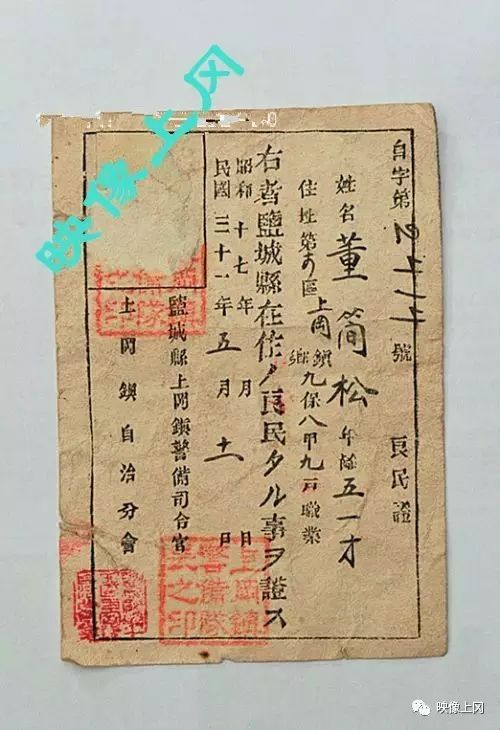 自字第 號 良民證
姓名 董简松 年齡 五一才
住址第 區上岡鎮鄉九保八甲九戸職業
右者鹽城縣在住ノ良民タル事ヲ證ス
昭和十七年 月 日
民國三十一年五月十一
鹽城縣上冈鎮警備司令官
上冈鎮自治分會
上岡鎮
警備隊
長之印
映像上冈
映像上冈